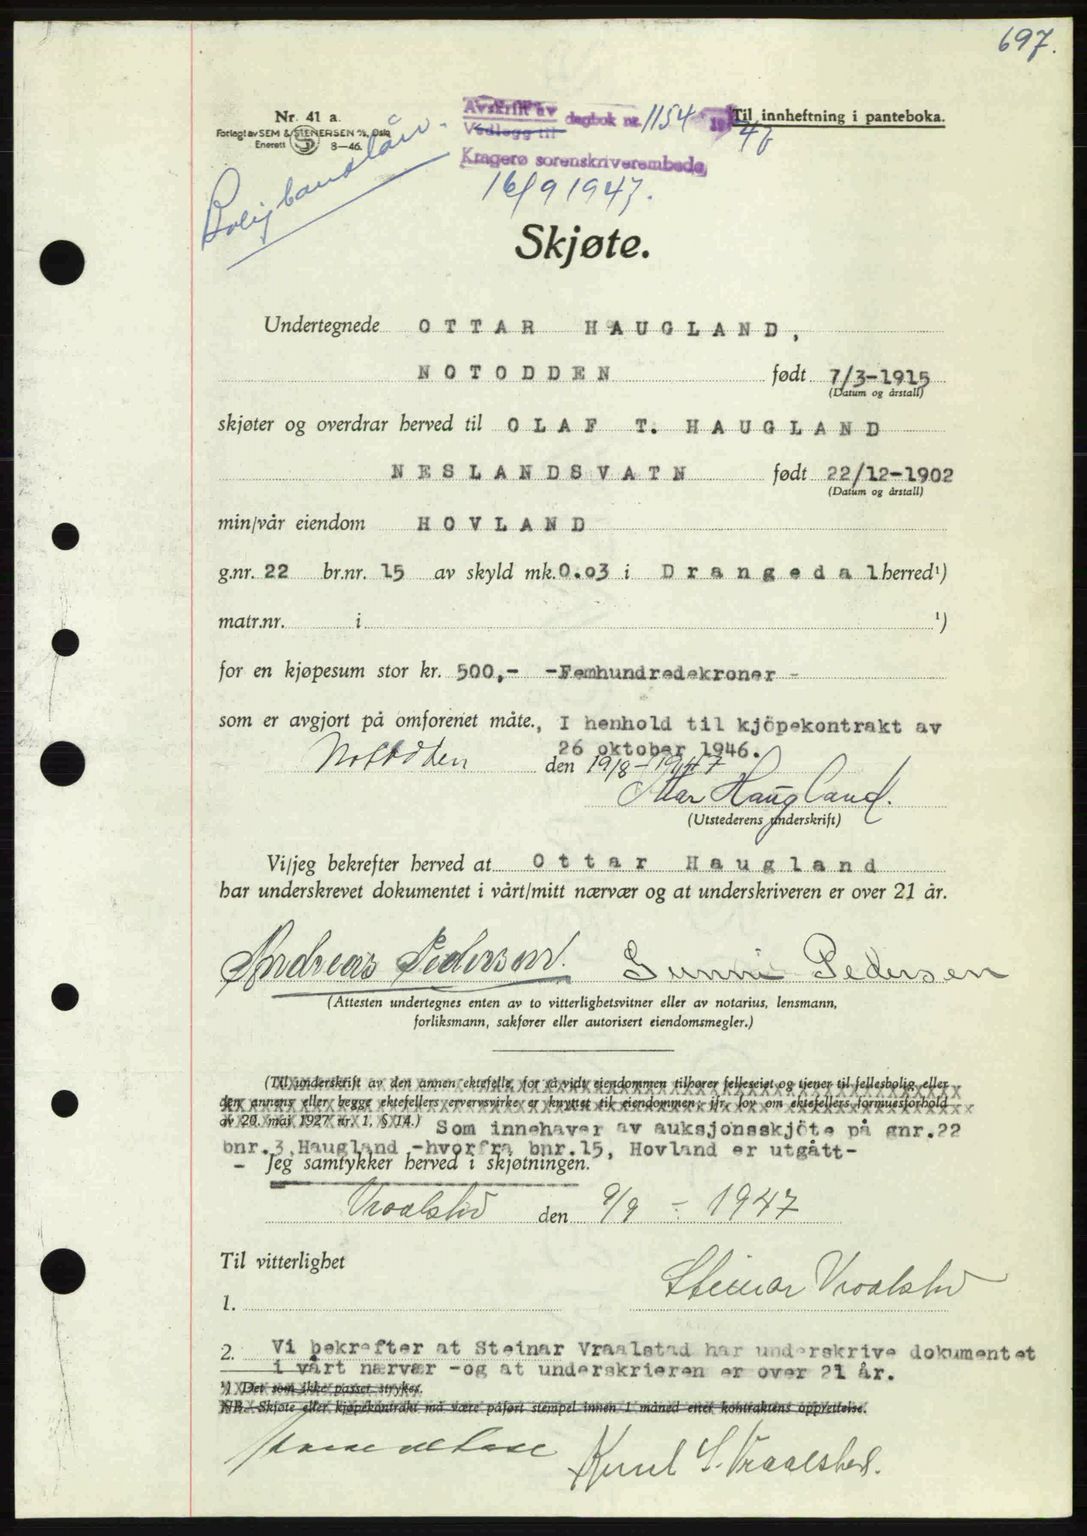 697.
Nr. 41 a.
Forlagt av SEM & STENERSEN A/S, Oslo
Enerett 8-46.
Avskrift av
Vedlegg til dagbok nr. 1154 19 47
Til innheftning i panteboka.
Kragerø sorenskriverembede,
16/9 1947.
Boligbanklån.
Skjøte.
Undertegnede OTTAR HAUGLAND,
NOTODDEN født 7/3-1915
(Datum og årstall)
skjøter og overdrar herved til OLAF T. HAUGLAND
NESLANDSVATN født 22/12-1902
(Datum og årstall)
min/vår eiendom HOVLAND
g.nr. 22 br.nr. 15 av skyld mk. 0.03 i Drangedal herred¹)
matr.nr. i ¹)
for en kjøpesum stor kr. 500,- -Femhundredekroner -
som er avgjort på omforenet måte., I henhold til kjöpekontrakt av
26 oktober 1946.
Notodden den 19/8-1947
Ottar Haugland.
(Utstederens underskrift)
Vi/jeg bekrefter herved at Ottar Haugland
har underskrevet dokumentet i vårt/mitt nærvær og at underskriveren er over 21 år.
Andreas Pedersen. Gunni Pedersen
(Attesten undertegnes enten av to vitterlighetsvitner eller av notarius, lensmann,
forliksmann, sakfører eller autorisert eiendomsmegler.)
(Til underskrift av den annen ektefelle, for så vidt eiendommen tilhører felleseiet og tjener til fellesbolig eller
den annens eller begge ektefellers ervervsvirke er knyttet til eiendommen, jfr. lov om ektefellers formuesforhold
av 20. mai 1927 nr. 1, § 14.) Som innehaver av auksjonsskjöte på gnr.22
bnr.3 Haugland -hvorfra bnr.15, Hovland er utgått-
- Jeg samtykker herved i skjøtningen.
Vraalstad den 9/9 - 1947
Til vitterlighet
Steinar Vraalstad
1.
2. Vi bekrefter at Steinar Vraalstad har underskrive dokumentet
i vårt nærvær -og at underskrieren er over 21 år.
¹) Det som ikke passer strykes.
NB. Skjøte eller kjøpekontrakt må være påført stempel innen 1 måned etter kontraktens opprettelse.
Knut S. Vraalstad.